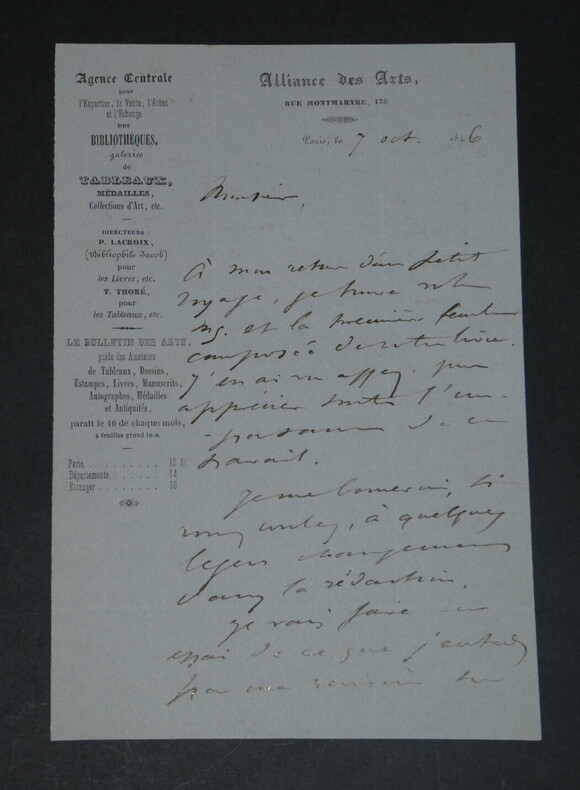 Agence Centrale
pour
l'Expertise, la Vente, l'Achat
et l'Echange
DES
BIBLIOTHÈQUES,
galeries
de
TABLEAUX,
MÉDAILLES,
Collections d'Art, etc.
DIRECTEURS :
P. LACROIX,
(Bibliophile Jacob)
pour
les Livres, etc.
T. THORÉ,
pour
les Tableaux, etc.
LE BULLETIN DES ARTS,
guide des Amateurs
de Tableaux, Dessins,
Estampes, Livres, Manuscrits,
Autographes, Médailles
et Antiquités,
paraît le 10 de chaque mois,
2 feuilles grand in-8.
Paris. . . . . . . . . 12 fr.
Départements. . . . . 14
Étranger . . . . . . . 16
Alliance des Arts,
RUE MONTMARTRE, 178.
Paris, le 7 oct. 1846
Monsieur,
À mon retour d'un petit
voyage, je trouve votre
ms. et la première feuille
composée de votre livre.
J'en ai vu assez pour
apprécier toute l'im-
portance de ce
travail.
Je me bornerai, si
vous voulez, à quelques
légers changements
dans la rédaction.
Je vais faire un
essai de ce que j'entends
par une révision